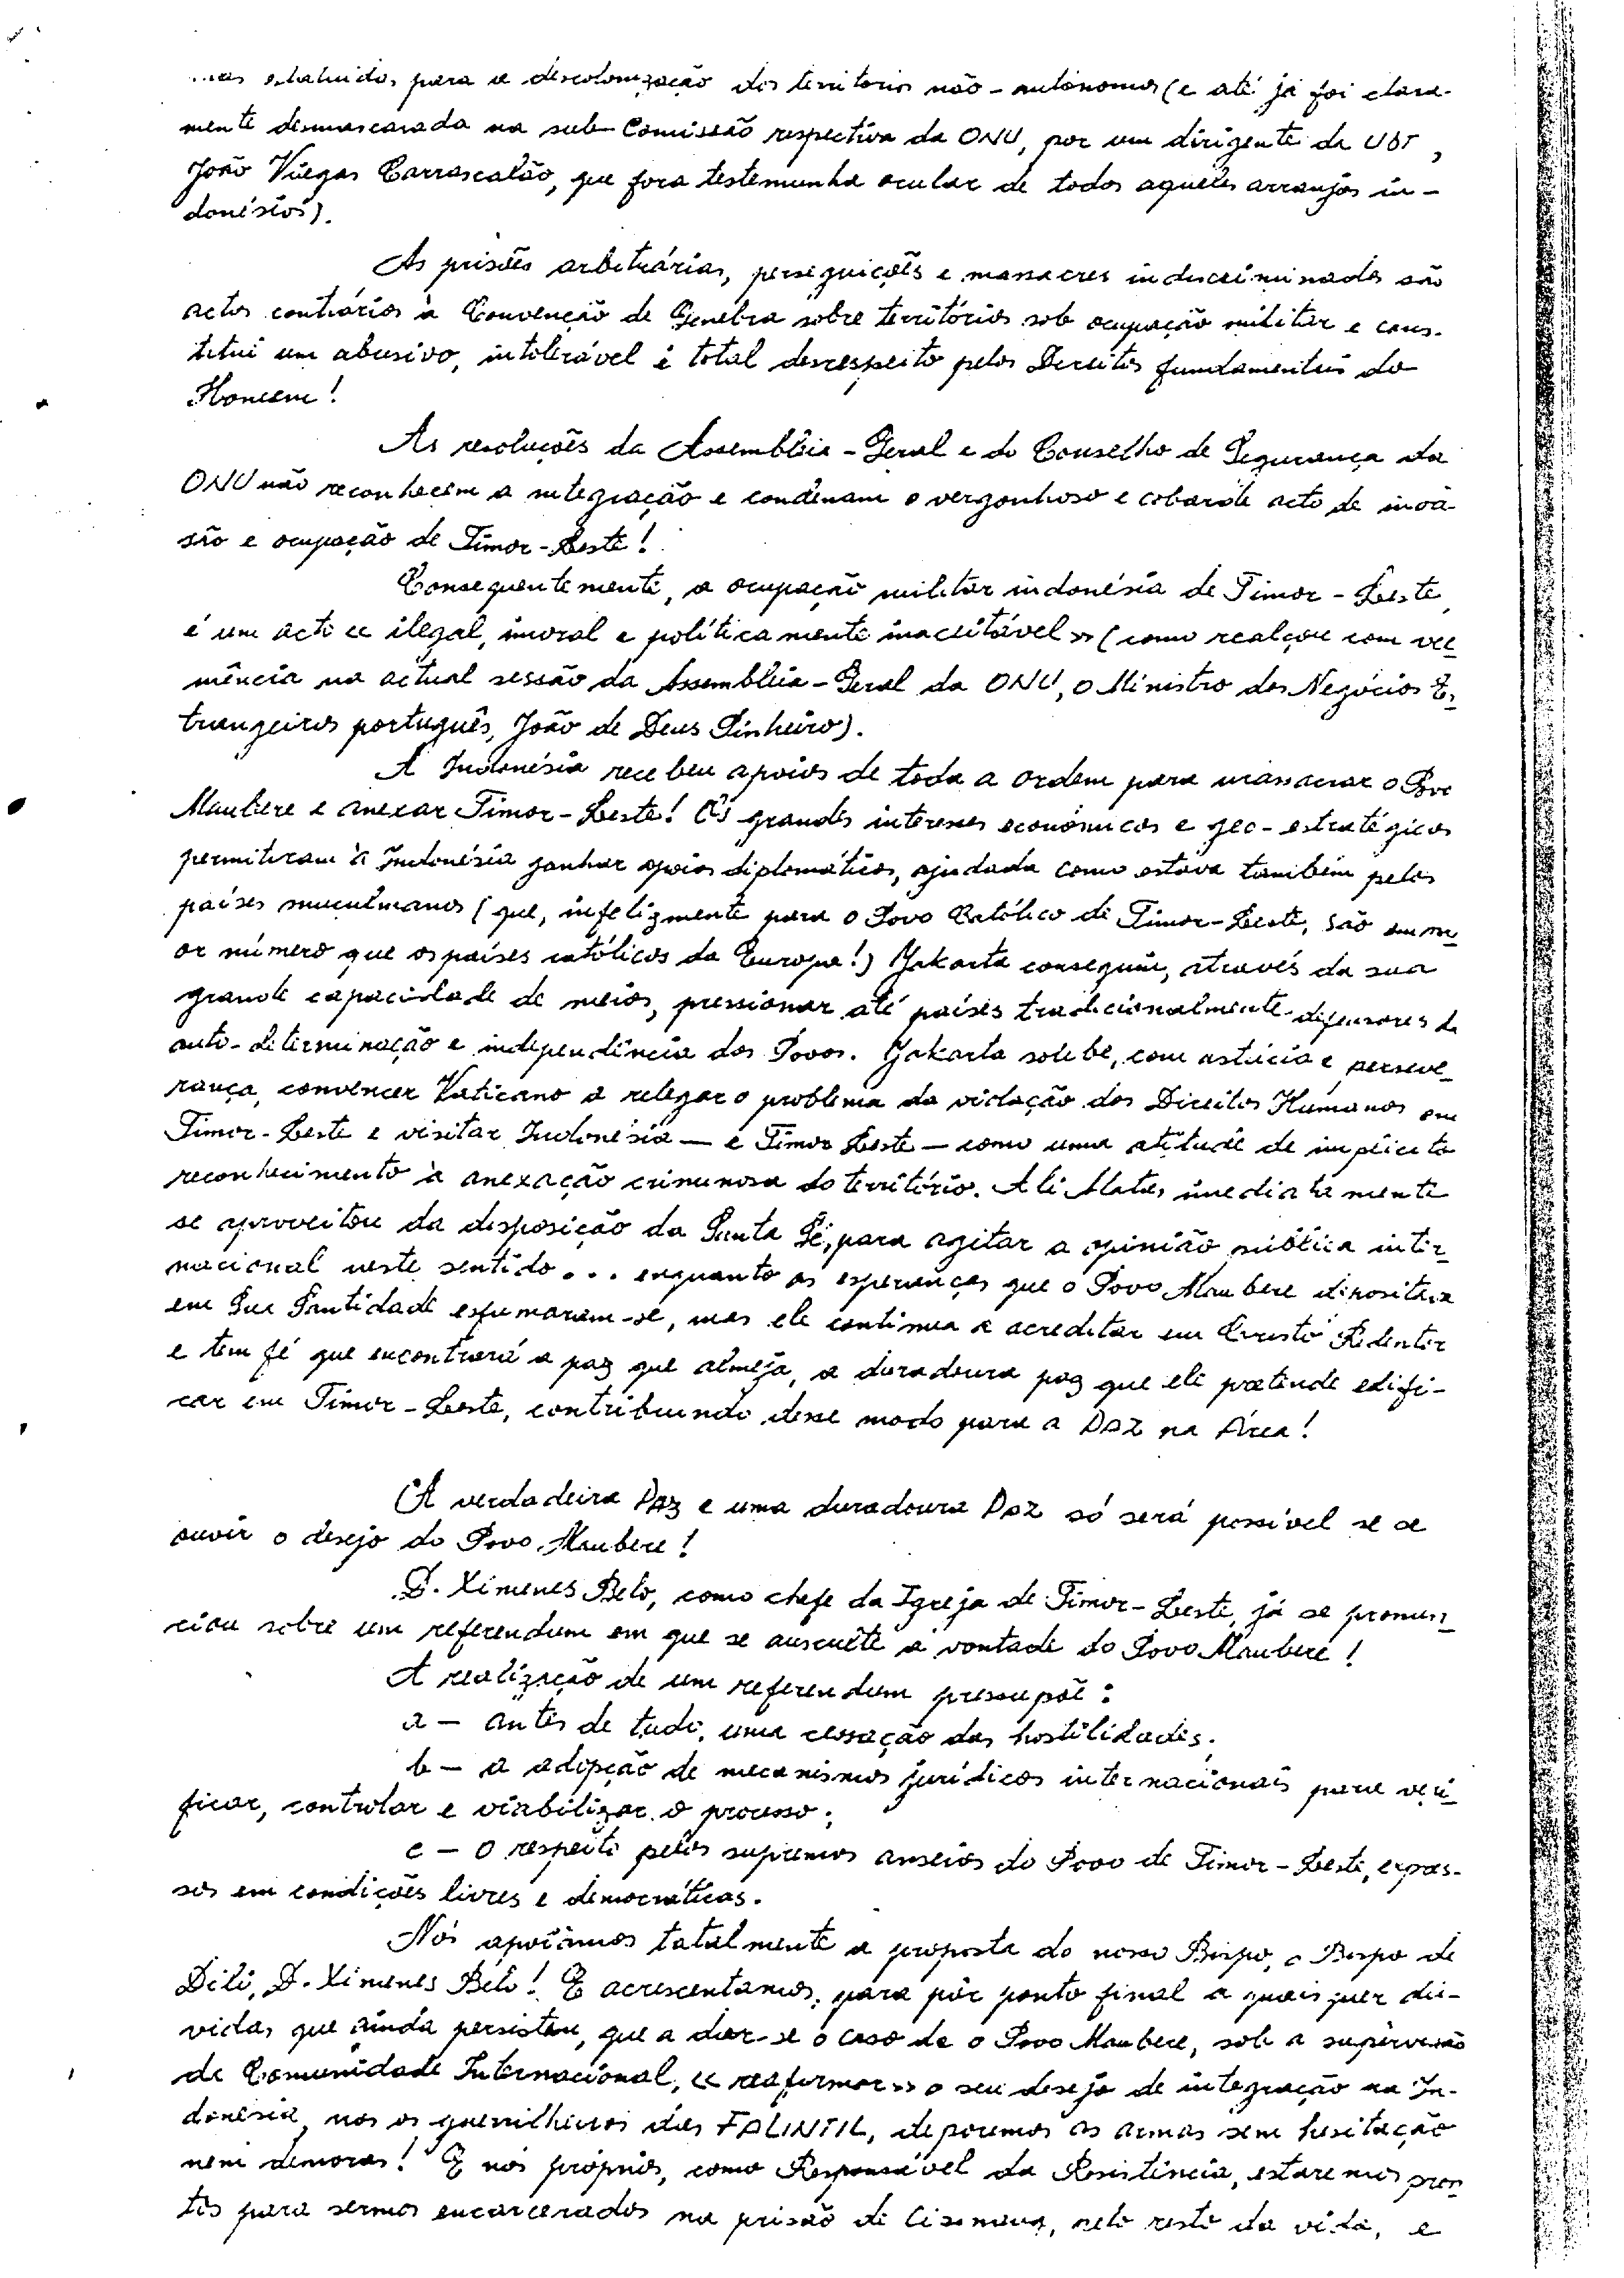 estatuidos para a descolonização dos territorios não-autónomos (e até já foi clara-
mente desmascarada na sub-Comissão respectiva da ONU, por um dirigente da UDT,
João Viegas Carrascalão, que fora testemunha ocular de todos aqueles arranjos in-
donésios).
As prisões arbitrárias, perseguições e massacres indiscriminados são
actos contrários à Convenção de Genebra sobre territórios sob ocupação militar e cons-
titui um abusivo, intolerável e total desrespeito pelos Direitos fundamentais do
Homem!
As resoluções da Assembleia-Geral e do Conselho de Segurança da
ONU não reconhecem a integração e condenam o vergonhoso e cobarde acto de inva-
são e ocupação de Timor-Leste!
Consequentemente, a ocupação militar indonésia de Timor-Leste,
é um acto «ilegal, imoral e políticamente inaceitável» (como realçou com vee
mência na actual sessão da Assembleia-Geral da ONU, o Ministro dos Negócios Es
trangeiros português, João de Deus Pinheiro).
A Indonésia recebeu apoios de toda a ordem para massacrar o Povo
Maubere e anexar Timor-Leste! Os grandes interesses económicos e geo-estratégicos
permitiram à Indonésia ganhar apoios diplomáticos, ajudada como estava também pelos
países muçulmanos (que, infelizmente para o Povo Católico de Timor-Leste, são em mai
or número que os países católicos da Europa!) Jakarta conseguiu, através da sua
grande capacidade de meios, pressionar até países tradicionalmente defensores da
auto-determinação e independência dos Povos. Jakarta soube, com astúcia e perseve
rança, convencer Vaticano a relegar o problema da violação dos Direitos Humanos em
Timor-Leste e visitar Indonésia — e Timor Leste — como uma atitude de implícito
reconhecimento à anexação criminosa do território. Ali Alatas imediatamente
se aproveitou da disposição da Santa Sé, para agitar a opinião pública inter
nacional neste sentido... enquanto as esperanças que o Povo Maubere depositava
em Sua Santidade esfumaram-se, mas ele continua a acreditar em Cristo Redentor
e tem fé que encontrará a paz que almeja, a duradoura paz que ele pretende edifi-
car em Timor-Leste, contribuindo desse modo para a PAZ na Área!
A verdadeira Paz e uma duradoura Paz só será possível se se
ouvir o desejo do Povo Maubere!
D. Ximenes Belo, como chefe da Igreja de Timor-Leste, já se pronun
ciou sobre um referendum em que se ausculte a vontade do Povo Maubere!
A realização de um referendum pressupõe:
a — antes de tudo, uma cessação das hostilidades;
b — a adopção de mecanismos jurídicos internacionais para veri
ficar, controlar e viabilizar o processo;
c — o respeito pelos supremos anseios do Povo de Timor-Leste, expres-
sos em condições livres e democráticas.
Nós apoiamos totalmente a proposta do nosso Bispo, o Bispo de
Dili, D. Ximenes Belo! E acrescentamos, para pôr ponto final a quaisquer dú-
vidas que ainda persistem, que a dar-se o caso de o Povo Maubere, sob a supervisão
da Comunidade Internacional, «reafirmar» o seu desejo de integração na In-
donésia, nós os guerrilheiros das FALINTIL, deporemos as armas sem hesitação
nem demoras! E nós próprios, como Responsável da Resistência, estaremos pron
tos para sermos encarcerados na prisão de Cipinang, pelo resto da vida, e